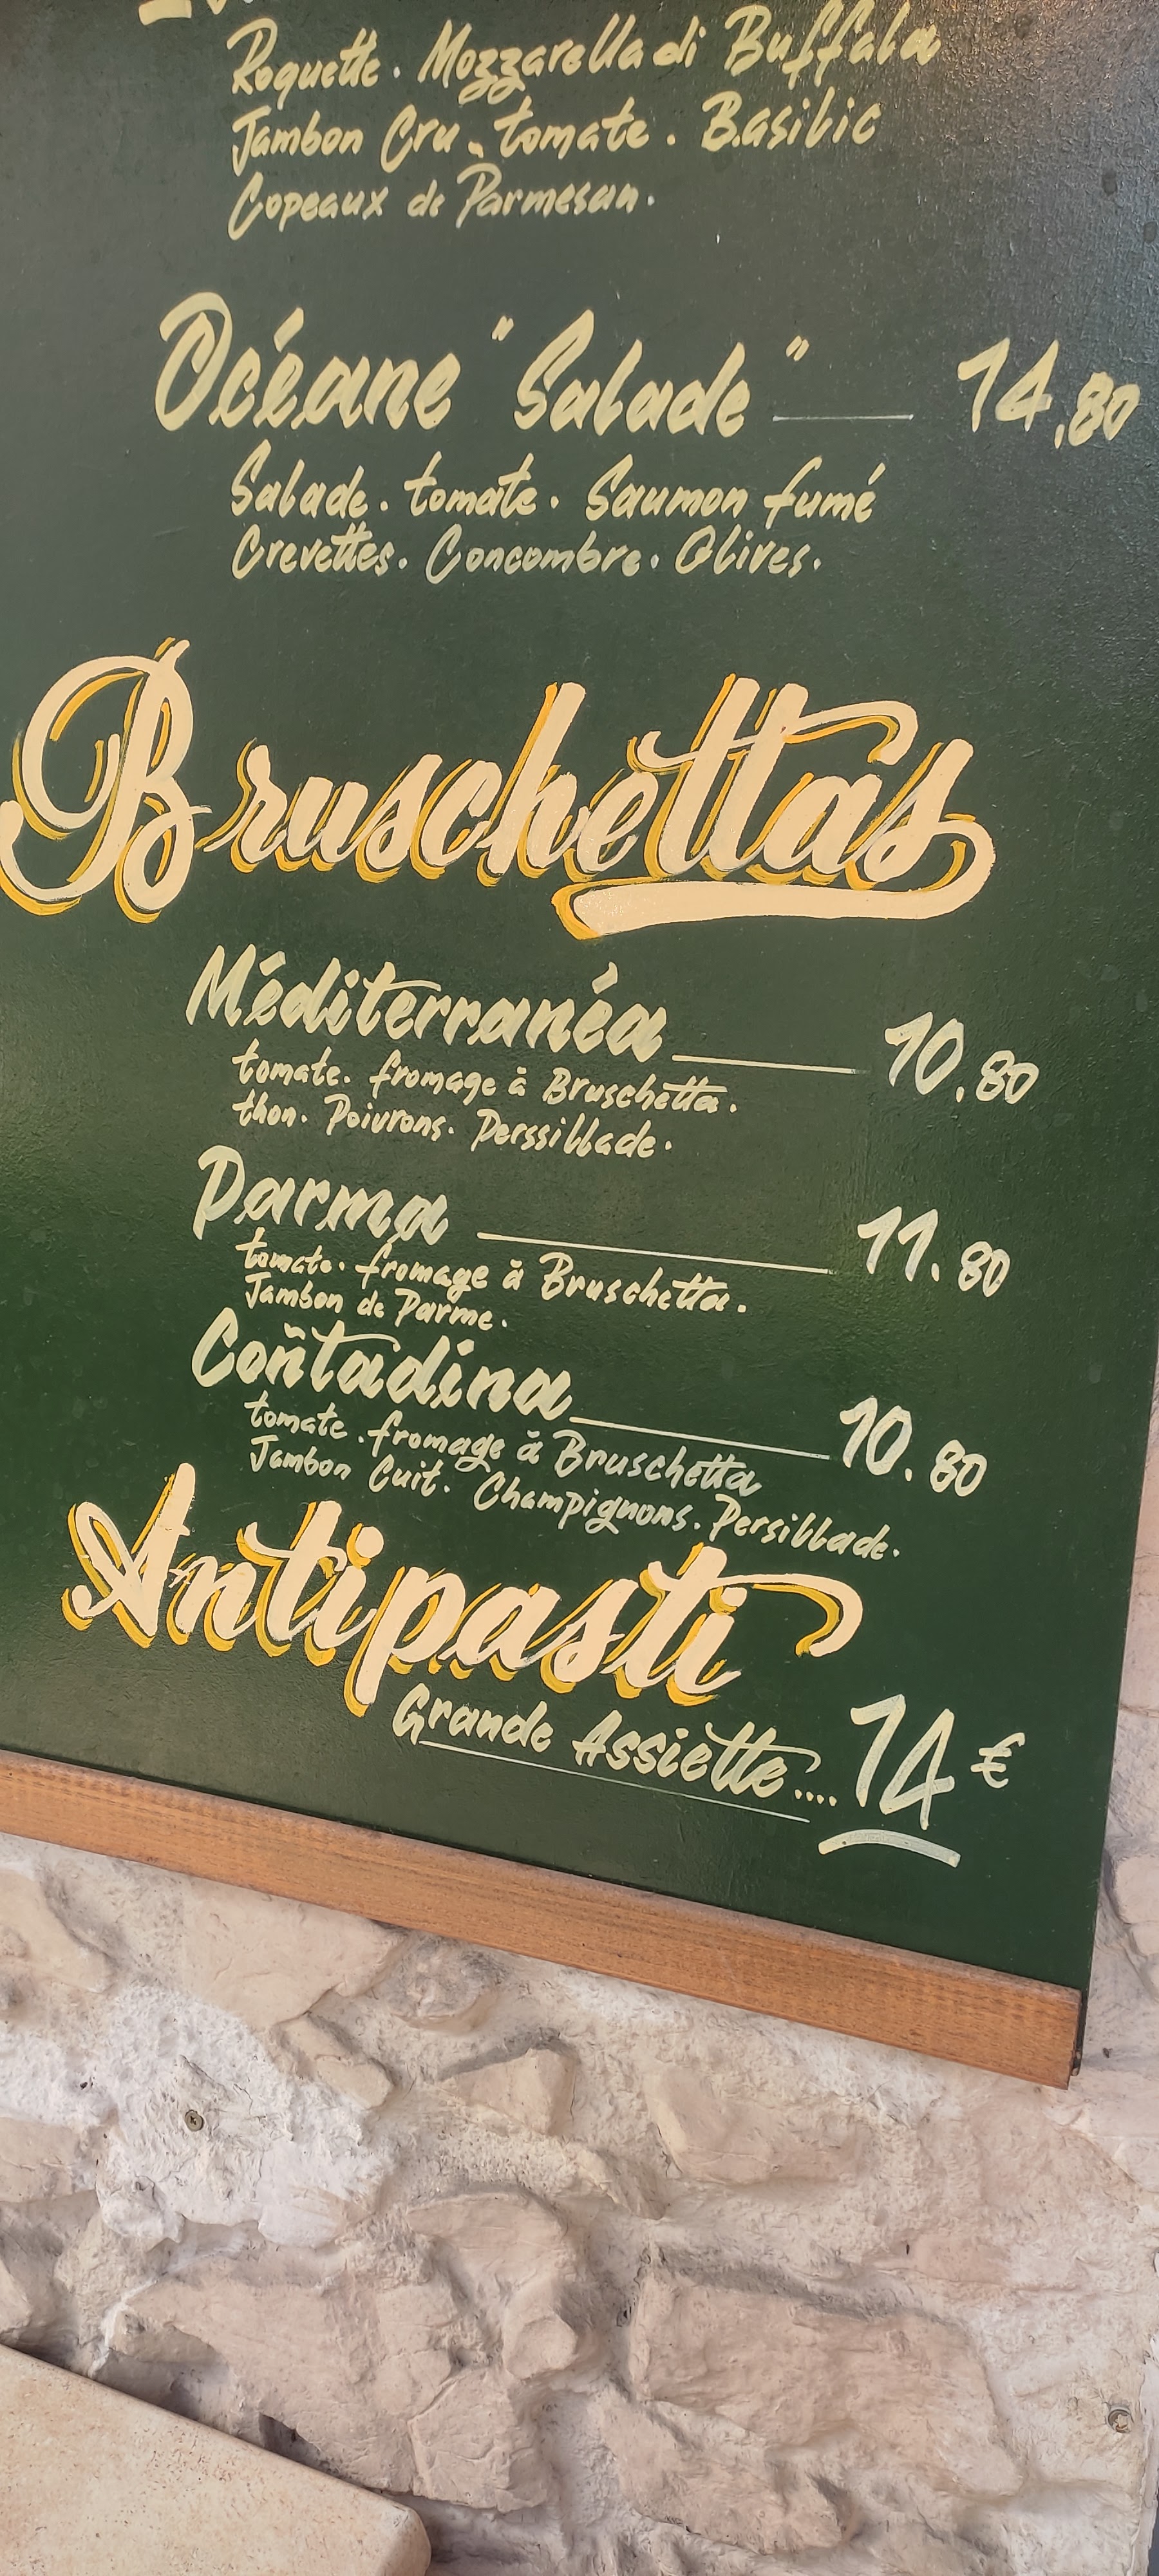 Roquette. Mozzarella di Buffala
Jambon Cru. tomate. Basilic
Copeaux de Parmesan.
Océane "Salade" 14.80
Salade. tomate. Saumon fumé
Crevettes. Concombre. Olives.
Bruschetta's
Méditerranéa 10.80
tomate. fromage à Bruschetta.
thon. Poivrons. Perssillade.
Parma 11.80
tomate. fromage à Bruschetta.
Jambon de Parme.
Coñtadina 10.80
tomate. fromage à Bruschetta
Jambon Cuit. Champignons. Persillade.
Antipasti
Grande Assiette.... 14€